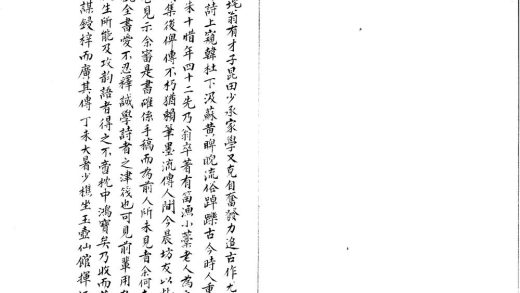 翁有才子昆田少承家學又克自奮發力追古作尤
詩上窺韓杜下汲蘇黄睥睨流俗踔躒古今時人重
未十赌年四十二先乃翁卒著有笛漁小藁老人為
集後俾傳不朽猶賴筆墨流傳人間今晨坊友以
見示余審是書確係手稿而為前人所未見者余何
全書愛不忍釋誠學詩者之津筏也可見前輩用
生所能及攻韵語者得之不啻枕中鴻寳矣乃收而
謀鋟梓而廣其傳丁未大暑少樵坐玉壺仙館揮